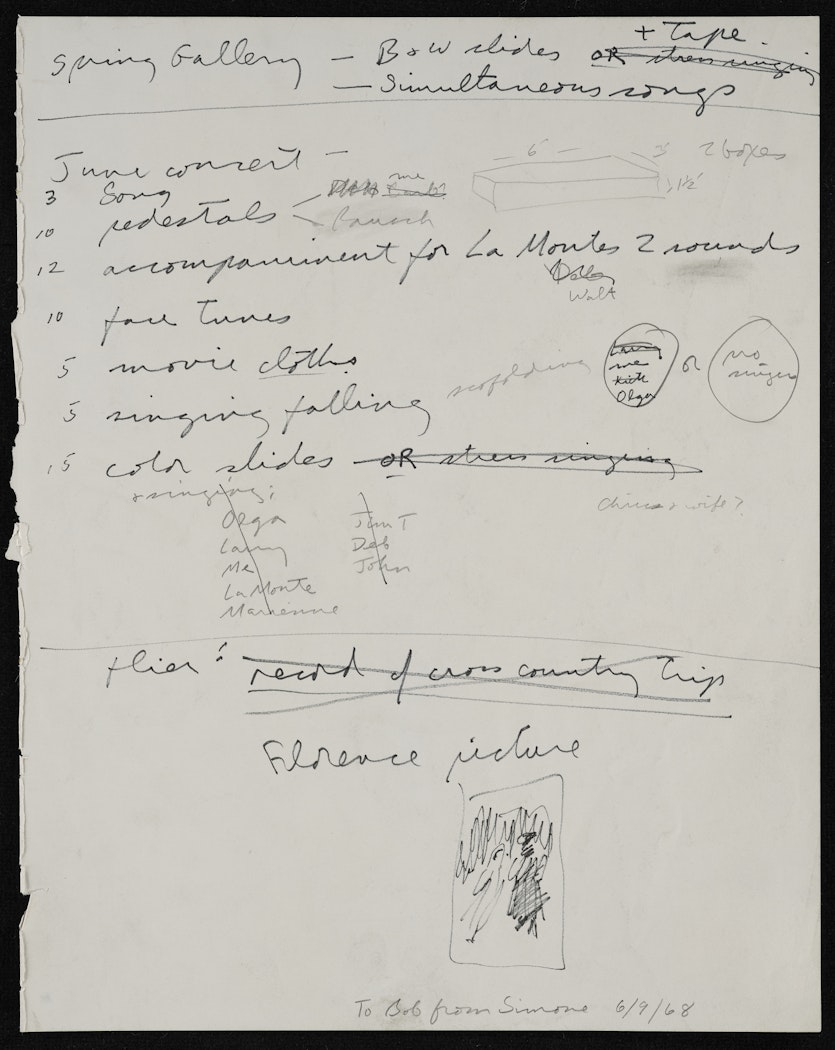 + Tape.
Spring Gallery — B+W slides OR stress singing
— Simultaneous songs
June concert —
3 Song me
10 pedestals Rausch
— 6' — 3' 2 boxes
1½'
12 accompaniment for La Montes 2 sounds
Walt
10 face tunes
5 movie cloths
5 singing falling scafolding
Larry
me
Olga
or
no
singers
15 color slides — OR stress singing
+ singing:
Olga Jim T
Larry Deb
Me John
La Monte
Marienne
+ wife?
flier: record of cross country trip
Florence picture
To Bob from Simone 6/9/68